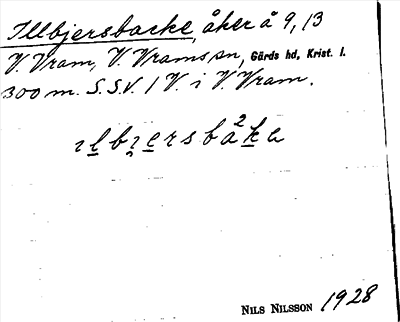 Illbjersbacke, åker å 9, 13
V. Vram, V. Vrams sn, Gärds hd, Krist. l.
300 m. S.S.V. / V. i V. Vram.
ılbȷersbà²ka
NILS NILSSON 1928